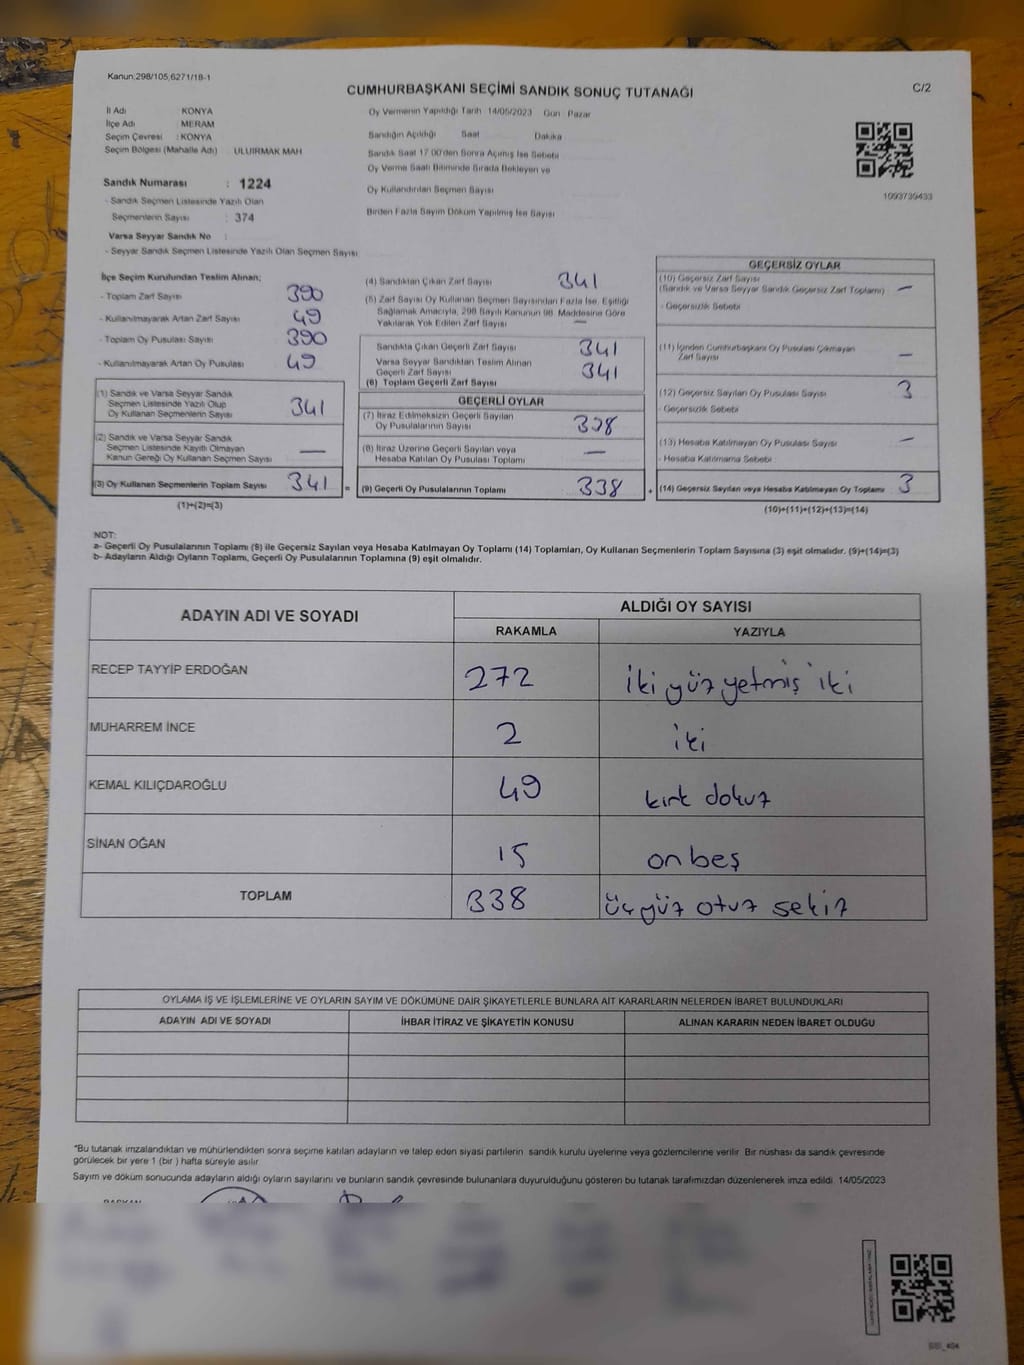 Kanun:298/105,6271/18-1
C/2
CUMHURBAŞKANI SEÇİMİ SANDIK SONUÇ TUTANAĞI
İl Adı : KONYA
İlçe Adı : MERAM
Seçim Çevresi : KONYA
Seçim Bölgesi (Mahalle Adı) : ULUIRMAK MAH
Sandık Numarası : 1224
- Sandık Seçmen Listesinde Yazılı Olan
Seçmenlerin Sayısı : 374
Varsa Seyyar Sandık No :
- Seyyar Sandık Seçmen Listesinde Yazılı Olan Seçmen Sayısı
Oy Vermenin Yapıldığı Tarih 14/05/2023 Gün : Pazar
Sandığın Açıldığı Saat Dakika
Sandık Saat 17.00'den Sonra Açılmış İse Sebebi
Oy Verme Saati Bitiminde Sırada Bekleyen ve
Oy Kullandırılan Seçmen Sayısı
Birden Fazla Sayım Döküm Yapılmış İse Sayısı
1093739433
İlçe Seçim Kurulundan Teslim Alınan;
- Toplam Zarf Sayısı 390
- Kullanılmayarak Artan Zarf Sayısı 49
- Toplam Oy Pusulası Sayısı 390
- Kullanılmayarak Artan Oy Pusulası 49
(1) Sandık ve Varsa Seyyar Sandık
Seçmen Listesinde Yazılı Olup
Oy Kullanan Seçmenlerin Sayısı 341
(2) Sandık ve Varsa Seyyar Sandık
Seçmen Listesinde Kayıtlı Olmayan
Kanun Gereği Oy Kullanan Seçmen Sayısı —
(3) Oy Kullanan Seçmenlerin Toplam Sayısı 341 =
(1)+(2)=(3)
(4) Sandıktan Çıkan Zarf Sayısı 341
(5) Zarf Sayısı Oy Kullanan Seçmen Sayısından Fazla İse, Eşitliği
Sağlamak Amacıyla, 298 Sayılı Kanunun 98. Maddesine Göre
Yakılarak Yok Edilen Zarf Sayısı —
Sandıkta Çıkan Geçerli Zarf Sayısı 341
Varsa Seyyar Sandıktan Teslim Alınan
Geçerli Zarf Sayısı 341
(6) Toplam Geçerli Zarf Sayısı
GEÇERLİ OYLAR
(7) İtiraz Edilmeksizin Geçerli Sayılan
Oy Pusulalarının Sayısı 338
(8) İtiraz Üzerine Geçerli Sayılan veya
Hesaba Katılan Oy Pusulası Toplamı —
(9) Geçerli Oy Pusulalarının Toplamı 338 +
GEÇERSİZ OYLAR
(10) Geçersiz Zarf Sayısı
(Sandık ve Varsa Seyyar Sandık Geçersiz Zarf Toplamı) —
- Geçersizlik Sebebi
(11) İçinden Cumhurbaşkanı Oy Pusulası Çıkmayan
Zarf Sayısı —
(12) Geçersiz Sayılan Oy Pusulası Sayısı 3
- Geçersizlik Sebebi
(13) Hesaba Katılmayan Oy Pusulası Sayısı —
- Hesaba Katılmama Sebebi :
(14) Geçersiz Sayılan veya Hesaba Katılmayan Oy Toplamı 3
(10)+(11)+(12)+(13)=(14)
NOT:
a- Geçerli Oy Pusulalarının Toplamı (9) ile Geçersiz Sayılan veya Hesaba Katılmayan Oy Toplamı (14) Toplamları, Oy Kullanan Seçmenlerin Toplam Sayısına (3) eşit olmalıdır. (9)+(14)=(3)
b- Adayların Aldığı Oyların Toplamı, Geçerli Oy Pusulalarının Toplamına (9) eşit olmalıdır.
ADAYIN ADI VE SOYADI ALDIĞI OY SAYISI
RAKAMLA YAZIYLA
RECEP TAYYİP ERDOĞAN 272 iki yüz yetmiş iki
MUHARREM İNCE 2 iki
KEMAL KILIÇDAROĞLU 49 kırk dokuz
SİNAN OĞAN 15 on beş
TOPLAM 338 üç yüz otuz sekiz
OYLAMA İŞ VE İŞLEMLERİNE VE OYLARIN SAYIM VE DÖKÜMÜNE DAİR ŞİKAYETLERLE BUNLARA AİT KARARLARIN NELERDEN İBARET BULUNDUKLARI
ADAYIN ADI VE SOYADI İHBAR İTİRAZ VE ŞİKAYETİN KONUSU ALINAN KARARIN NEDEN İBARET OLDUĞU
*Bu tutanak imzalandıktan ve mühürlendikten sonra seçime katılan adayların ve talep eden siyasi partilerin sandık kurulu üyelerine veya gözlemcilerine verilir. Bir nüshası da sandık çevresinde
görülecek bir yere 1 (bir ) hafta süreyle asılır.
Sayım ve döküm sonucunda adayların aldığı oyların sayılarını ve bunların sandık çevresinde bulunanlara duyurulduğunu gösteren bu tutanak tarafımızdan düzenlenerek imza edildi. 14/05/2023
BAŞKAN